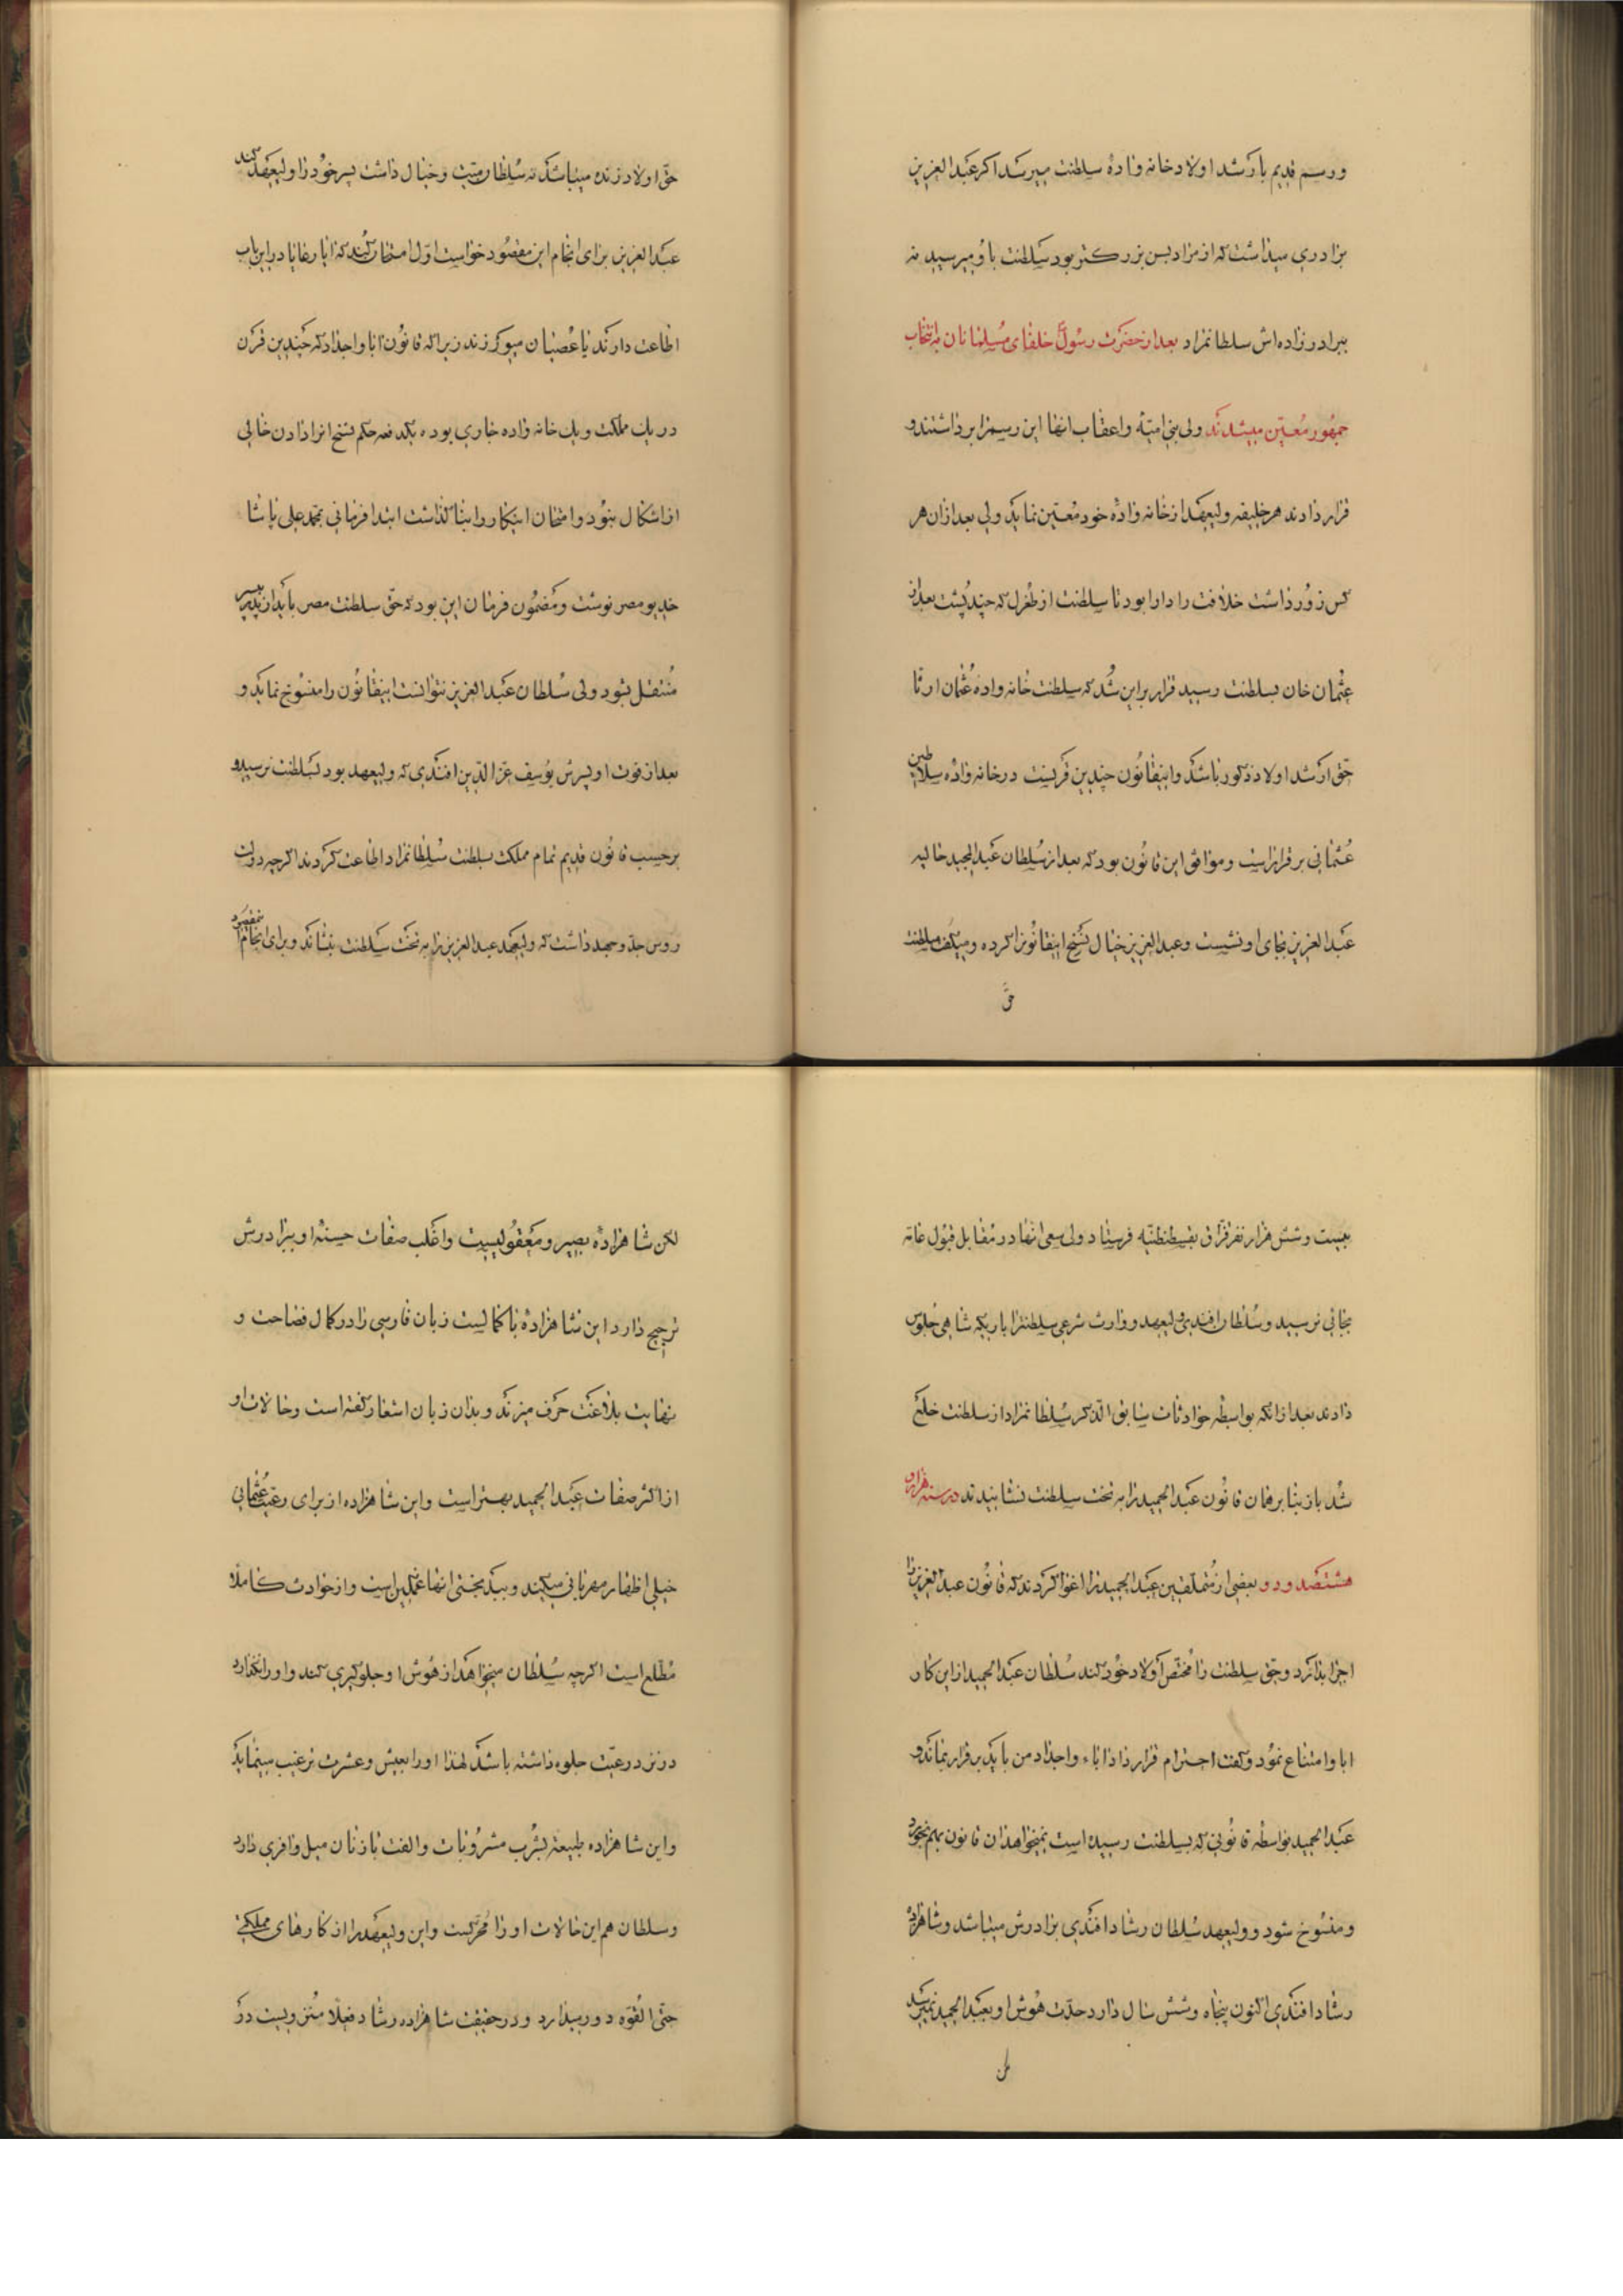 و رسم قدیم بارشد اولاد خانه واده سلطنت میرسد اکر عبدالعزیز
برادری میداشت که از مراد بسن بزرکتر بود سلطنت باو میرسید نه
ببرادر زاده اش سلطانمراد بعد از حضرت رسول خلفای مسلمانان بانتخاب
جمهور معین میشدند ولی بنی امیه و اعقاب انها این رسمرا برداشتند و
قرار دادند هر خلیفه ولیعهد از خانه واده خود معین نماید ولی بعد از ان هر
کس زور داشت خلافت را دارا بود تا سلطنت از طغرل که چند پشت بعد از
عثمان خان بسلطنت رسید قرار بر این شد که سلطنت خانه واده عثمان ارثا
حق ارشد اولاد ذکور باشد و اینقانون چندین قرنست در خانه واده سلاطین
عثمانی برقرار است و موافق این قانون بود که بعد از سلطان عبدالمجید خالیه
عبدالعزیز بجای او نشست و عبدالعزیز خیال نسخ اینقانونرا کرده و میکفت سلطنت
حق
حق اولاد زنده میباشد نه سلطان میت و خیال داشت پسر خود را ولیعهد کند
عبدالعزیز برای انجام این مقصود خواست اول امتحان کند که ایا رعایا در این باب
اطاعت دارند یا عصیان میورزند زیرا که قانون ابا و اجداد که چندین قرن
در یک مملکت و یک خانه واده جاری بوده یکدفعه حکم نسخ انرا دادن خالی
از اشکال نبود و امتحان اینکار را بنا کذاشت ابتدا فرمانی بمحمد علی پاشا
خدیو مصر نوشت و مضمون فرمان این بود که حق سلطنت مصر باید از پدر بپسر
منتقل شود ولی سلطان عبدالعزیز نتوانست اینقانون را منسوخ نماید و
بعد از فوت او پسرش یوسف عزالدین افندی که ولیعهد بود بسلطنت نرسید و
برحسب قانون قدیم تمام مملکت بسلطنت سلطانمراد اطاعت کردند اکرچه دولت
روس جد و جهد داشت که ولیعهد عبدالعزیز را به تخت سلطنت بنشاند و برای انجام مقصود
بیست و شش هزار نفر قزاق بقسطنطنیه فرستاد ولی سعی انها در مقابل قبول عامه
بجائی نرسید و سلطان افندی ولیعهد و وارث شرعی سلطنترا باریکه شاهی جلوس
دادند بعد از انکه بواسطه حوادثات سابق الذکر سلطانمراد از سلطنت خلع
شد باز بنا بر همان قانون عبدالحمید را به تخت سلطنت نشانیدند در سنه هزار و
هشتصد و د و بعضی از متملقین عبدالحمید را اغوا کردند که قانون عبدالعزیز را
اجرا بدارد و حق سلطنت را مختص اولاد خود کند سلطان عبدالحمید از این کار
ابا و امتناع نمود و کفت احترام قرار داد اباء و اجداد من باید برقرار بماند و
عبدالحمید بواسطه قانونی که بسلطنت رسیده است نمیخواهد ان قانون بهم بخورد
و منسوخ شود و ولیعهد سلطان رشاد افندی برادرش میباشد و شاهزاده
رشاد افندی اکنون پنجاه و شش سال دارد حدت هوش او بعبدالحمید نمیرسد
لکن
لکن شاهزاده بصیر و معقولیست و اغلب صفات حسنه او ببرادرش
ترجیح دارد این شاهزاده با کمالیست زبان فارسی را در کمال فصاحت و
نهایت بلاغت حرف میزند و بدان زبان اشعار کفته است و حالات او
از اکثر صفات عبدالحمید بهتر است و این شاهزاده از برای رعیت عثمانی
خیلی اظهار مهربانی میکند و ببدبختی انها غمکین است و از حوادث کاملا
مطلع است اکرچه سلطان میخواهد از هوش او جلوکیری کند و او را نکذارد
در نزد رعیت جلوه داشته باشد لهذا او را بعیش و عشرت ترغیب مینماید
و این شاهزاده طبیعة بشرب مشروبات و الفت با زنان میل وافری دارد
و سلطان هم این حالات او را محرکست و این ولیعهد را از کارهای مملکتی
حتی القوه دور میدارد و در حقیقت شاهزاده رشاد فعلا منزویست در